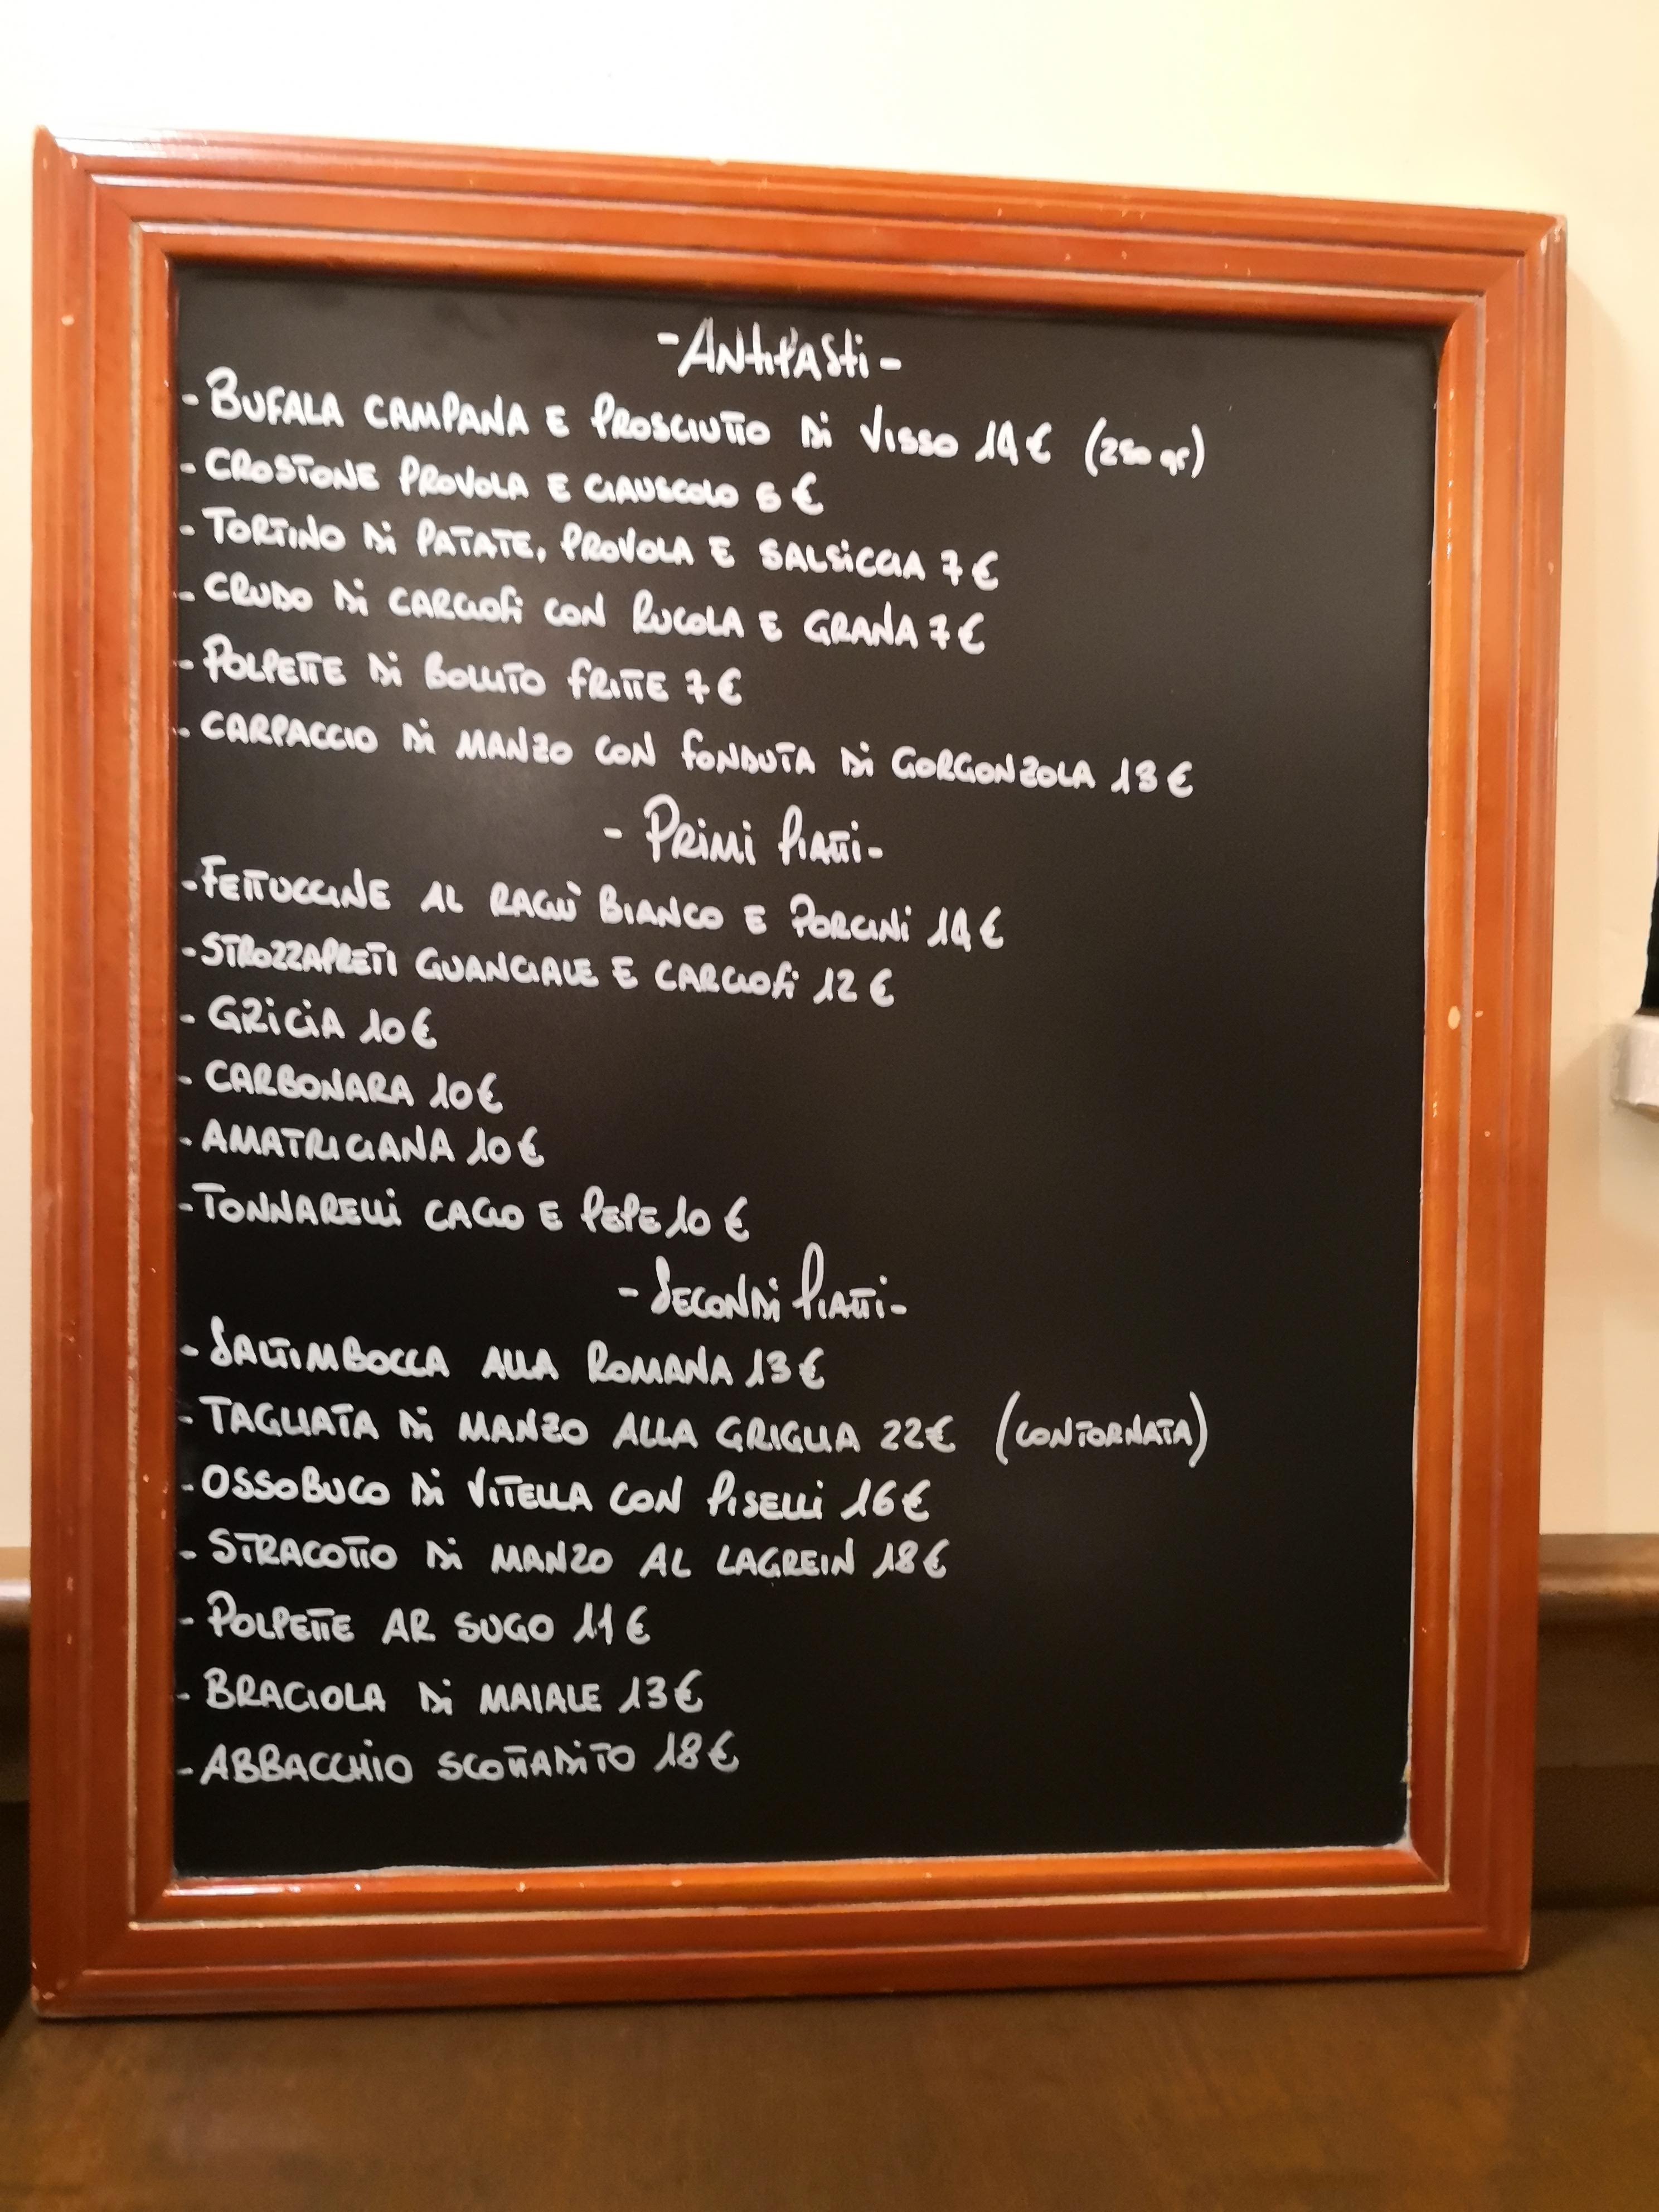 -Antipasti-
- BUFALA CAMPANA E PROSCIUTTO Di VISSO 14€ (250 gr)
- CROSTONE PROVOLA E CIAUSCOLO 5 €
- TORTINO Di PATATE, PROVOLA E SALSiCCIA 7 €
- CRUDO Di CARCIOFi CON RUCOLA E GRANA 7€
- POLPETTE Di BOLLITO FRITTE 7 €
- CARPACCIO Di MANZO CON FONDUTA Di GORGONZOLA 13 €
- PRiMi PIATTi-
- FETTUCCINE AL RAGÙ BIANCO E PORCiNi 14€
- STROZZAPRETI GUANCIALE E CARCIOFi 12 €
- GRiCiA 10€
- CARBONARA 10€
- AMATRICIANA 10€
- TONNARELLi CACIO E PEPE 10 €
- SECONDi PIATTi-
- SALTIMBOCCA ALLA ROMANA 13€
- TAGLIATA Di MANZO ALLA GRIGLIA 22€ (CONTORNATA)
- OSSOBUCO Di VITELLA CON PISELLi 16€
- STRACOTTO Di MANZO AL LAGREIN 18€
- POLPETTE AR SUGO 11€
- BRACIOLA Di MAIALE 13€
- ABBACCHiO SCOTTADiTO 18€